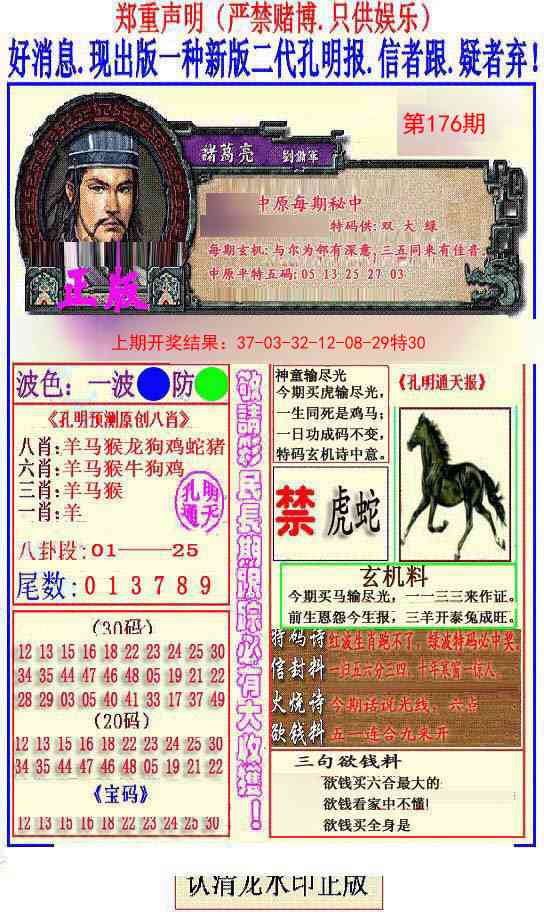 郑重声明（严禁赌博.只供娱乐）
好消息.现出版一种新版二代孔明报.信者跟.疑者弃!
第176期
諸葛亮
中原每期秘中
特码供: 双 大 绿
每期玄机: 与尔为邻有深意, 三五同来有佳音.
中原平特五码: 05 13 25 27 03
正版
上期开奖结果: 37-03-32-12-08-29特30
波色: 一波 防
《孔明预测原创八肖》
八肖: 羊马猴龙狗鸡蛇猪
六肖: 羊马猴牛狗鸡
三肖: 羊马猴
一肖: 羊
孔明
通天
八卦段: 01——25
尾数: 0 1 3 7 8 9
(30码)
12 13 15 16 18 22 23 24 25 30
34 35 44 47 46 48 05 19 21 22
28 29 03 05 40 41 33 17 37 49
(20码)
12 13 15 16 18 22 23 24 25 30
34 35 44 47 46 48 05 19 21 22
《宝码》
12 13 15 16 18 22 23 24 25 30
敬請彩民長期跟踪必有大收獲!
神童输尽光
今期买虎输尽光,
一生同死是鸡马;
一日功成码不变,
特码玄机诗中意。
《孔明通天报》
禁
虎蛇
玄机料
今期买马输尽光, 一一三三来作证。
前生恩怨今生报, 三羊开泰兔成旺。
特码诗 红波生肖跑不了, 绿波特码必中奖.
信封料 一归五六分三四, 十年寒窗一作人.
火烧诗 今期话说光线, 六点
欲钱料 五一连合九来开
三句欲钱料
欲钱买六合最大的
欲钱看家中不懂!
欲钱买全身是
认清龙水印正版